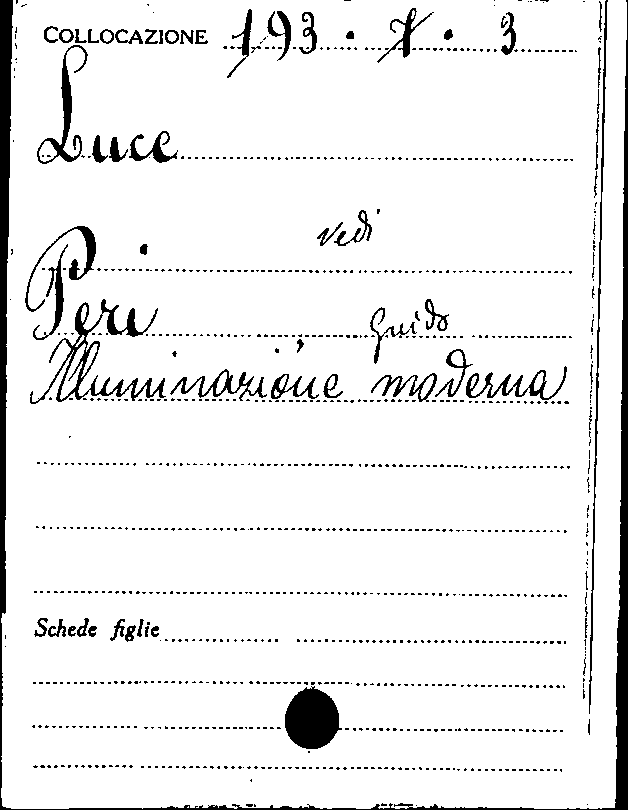 COLLOCAZIONE 193 . 7 . 3
Luce
vedi
Peri Guido
Illuminazione moderna
Schede figlie